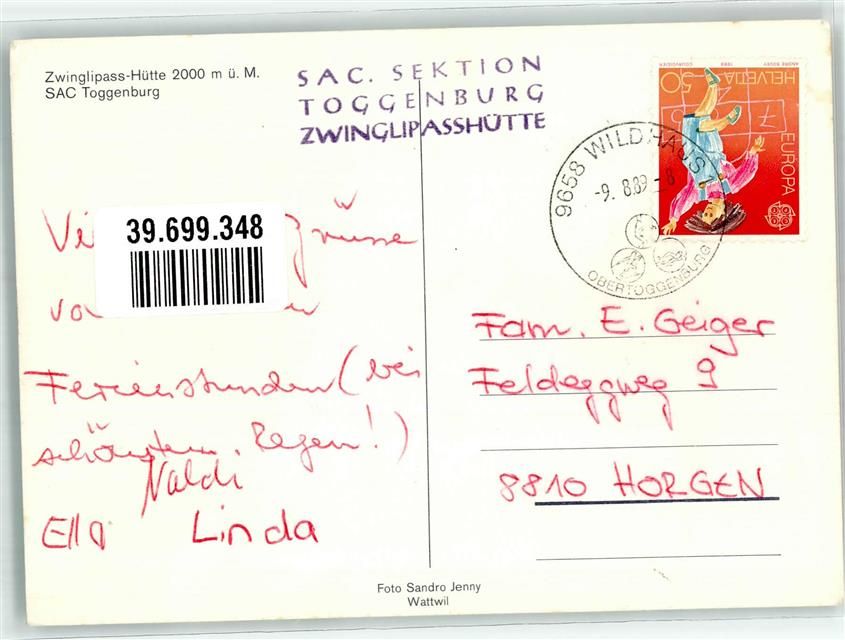 Zwinglipass-Hütte 2000 m ü. M.
SAC Toggenburg
SAC. SEKTION
TOGGENBURG
ZWINGLIPASSHÜTTE
9658 WILDHAUS 1
-9. 8.89 - 8
OBERTOGGENBURG
HELVETIA 50
EUROPA
7
39.699.348
Vi grüsse
Ferienstunden (bei
schönstem Regen!)
Naldi
Ella Linda
Fam. E. Geiger
Feldeggweg 9
8810 HORGEN
Foto Sandro Jenny
Wattwil